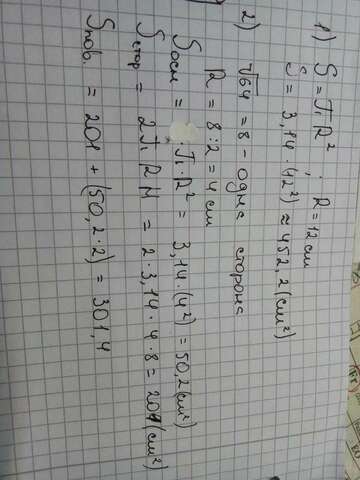 1) S = π R² ; R = 12 см
S = 3,14 · (12²) ≈ 452,2 (см²)
2) √64 = 8 - одна сторона
R = 8 : 2 = 4 см
Sосн = π · R² = 3,14 · (4²) = 50,2 (см²)
Sстор = 2π R H = 2 · 3,14 · 4 · 8 = 201 (см²)
Sпов. = 201 + (50,2 · 2) = 301,4